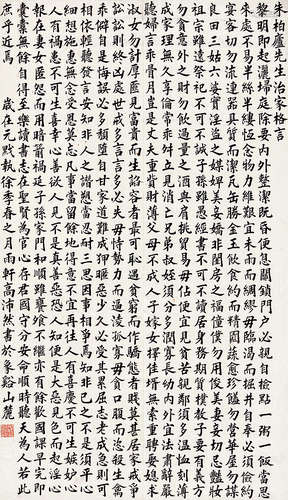 朱柏廬先生治家格言
黎明即起灑掃庭除要內外整潔既昏便息關鎖門户必親自檢點一粥一飯當思
來處不易半絲半縷恆念物力維艱宜未雨而綢繆毋臨渴而掘井自奉必須儉約
宴客切勿流連器具質而潔瓦缶勝金玉飲食約而精園蔬愈珍饈勿營華屋勿謀
良田三姑六婆實淫盜之媒婢美妾嬌非閨房之福僮僕勿用俊美妻妾切忌豔妝
祖宗雖遠祭祀不可不誠子孫雖愚經書不可不讀居身務期質樸教子要有義方
勿貪意外之財勿飲過量之酒與肩挑貿易毋佔便宜見貧苦親鄰須多溫恤刻薄
成家理無久享倫常乖舛立見消亡兄弟叔姪須分多潤寡長幼內外宜法肅辭嚴
聽婦言乖骨肉豈是丈夫重貲財薄父母不成人子嫁女擇佳壻無索重聘娶媳求
淑女勿計厚匳見富貴而生諂容者最可恥遇貧窮而作驕態者賤莫甚居家戒爭
訟訟則終凶處世戒多言言多必失毋恃勢力而凌逼孤寡毋貪口腹而恣殺生禽
乖僻自是悔誤必多頹惰自甘家道難成狎暱惡少久必受其累屈志老成急則可
相依輕聽發言安知非人之譖愬當忍耐三思因事相爭焉知非己之不是須平心
細想施惠無念受恩莫忘凡事當留餘地得意不宜再往人有喜慶不可生妒忌心
人有禍患不可生喜幸心善欲人見不是真善惡恐人知便是大惡見色而起淫心
報在妻女匿怨而用暗箭禍延子孫家門和順雖饔飧不繼亦有餘歡國課早完即
囊橐無餘自得至樂讀書志在聖賢為官心存君國守分安命順時聽天為人若此
庶乎近焉 歲在元黓執徐季春之月雨軒高沛然書於象谿山麓